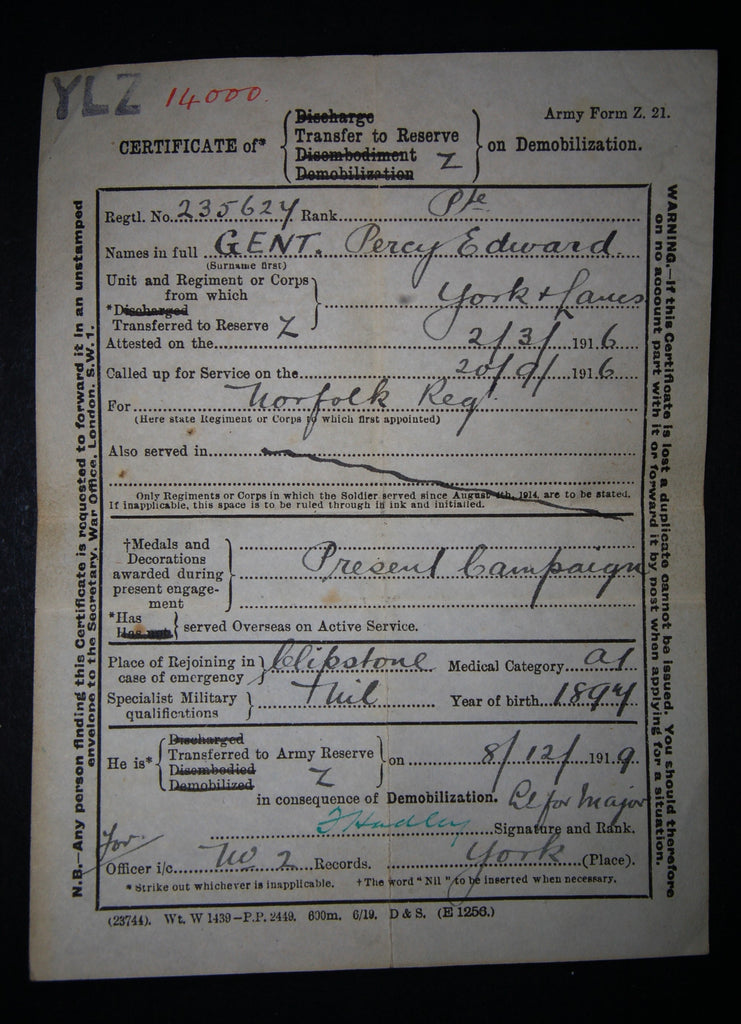 YLZ 14000.
Army Form Z. 21.
CERTIFICATE of*
Discharge
Transfer to Reserve
Disembodiment Z
Demobilization
on Demobilization.
Regtl. No. 235627 Rank Pte
Names in full GENT. Percy Edward
(Surname first)
Unit and Regiment or Corps
from which
*Discharged
Transferred to Reserve Z
York & Lancs
Attested on the 2/3/ 1916
Called up for Service on the 20/9/ 1916
For Norfolk Reg
(Here state Regiment or Corps to which first appointed)
Also served in
Only Regiments or Corps in which the Soldier served since August 4th, 1914, are to be stated.
If inapplicable, this space is to be ruled through in ink and initialled.
†Medals and
Decorations
awarded during
present engage-
ment
Present Campaign
*Has
Has not
served Overseas on Active Service.
Place of Rejoining in
case of emergency
Clipstone Medical Category A1
Specialist Military
qualifications
Nil Year of birth 1897
He is*
Discharged
Transferred to Army Reserve
Disembodied Z
Demobilized
on 8/12/ 1919
in consequence of Demobilization.
for Major
F Hadley Signature and Rank.
for
Officer i/c No 2 Records. York (Place).
* Strike out whichever is inapplicable. † The word "Nil" to be inserted when necessary.
(23744). Wt. W 1439—P.P. 2449. 600m. 6/19. D & S. (E 1256.)
N.B.—Any person finding this Certificate is requested to forward it in an unstamped
envelope to the Secretary, War Office, London, S.W. 1.
WARNING.—If this Certificate is lost a duplicate cannot be issued. You should therefore
on no account part with it or forward it by post when applying for a situation.